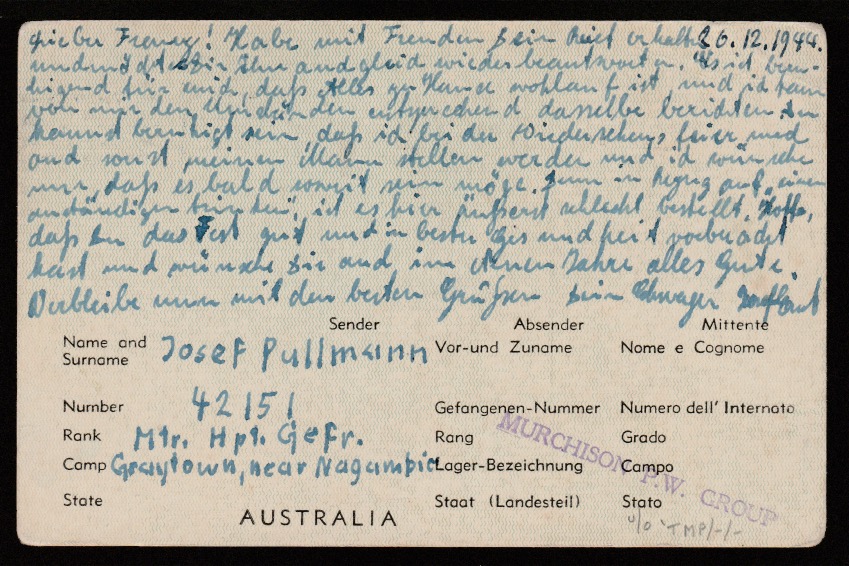 Lieber Franz! Habe mit Freuden Dein Brief erhalten 20.12.1944.
und möchte Dir ihn auch gleich wieder beantworten. Es ist beru-
higend für mich, daß Alles zu Hause wohlauf ist, und ich kann
von mir den Umständen entsprechend dasselbe berichten. Du
kannst beruhigt sein, daß ich bei der Wiedersehensfeier und
auch sonst meinen Mann stellen werde und ich wünsche
nur, daß es bald soweit sein möge. Denn in Bezug auf "einen
anständigen trinken", ist es hier äußerst schlecht bestellt. Hoffe,
daß Du das Fest gut und in bester verbracht
hast und wünsche Dir auch im Neuen Jahre alles Gute.
Verbleibe nun mit den besten Grüßen Dein Schwager
Sender Absender Mittente
Name and Surname Josef Pullmann Vor-und Zuname Nome e Cognome
Number 42151 Gefangenen-Nummer Numero dell' Internato
Rank Mtr. Hpt. Gefr. Rang Grado
Camp Graytown, near Nagambie Lager-Bezeichnung Campo
MURCHISON P.W. GROUP
State AUSTRALIA Staat (Landesteil) Stato